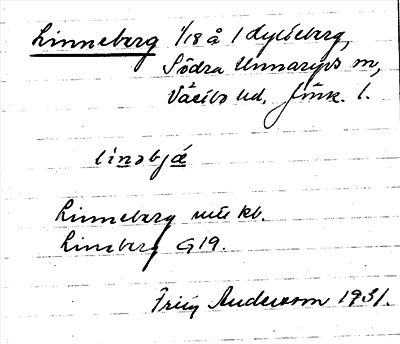 Linneberg 1/18 å 1 Dylleberg,
Södra Unnaryds sn,
Västbo hd, Jönk. l.
linəbjæ
Linneberg kb.
Lineberg G19.
Andersson 1931.